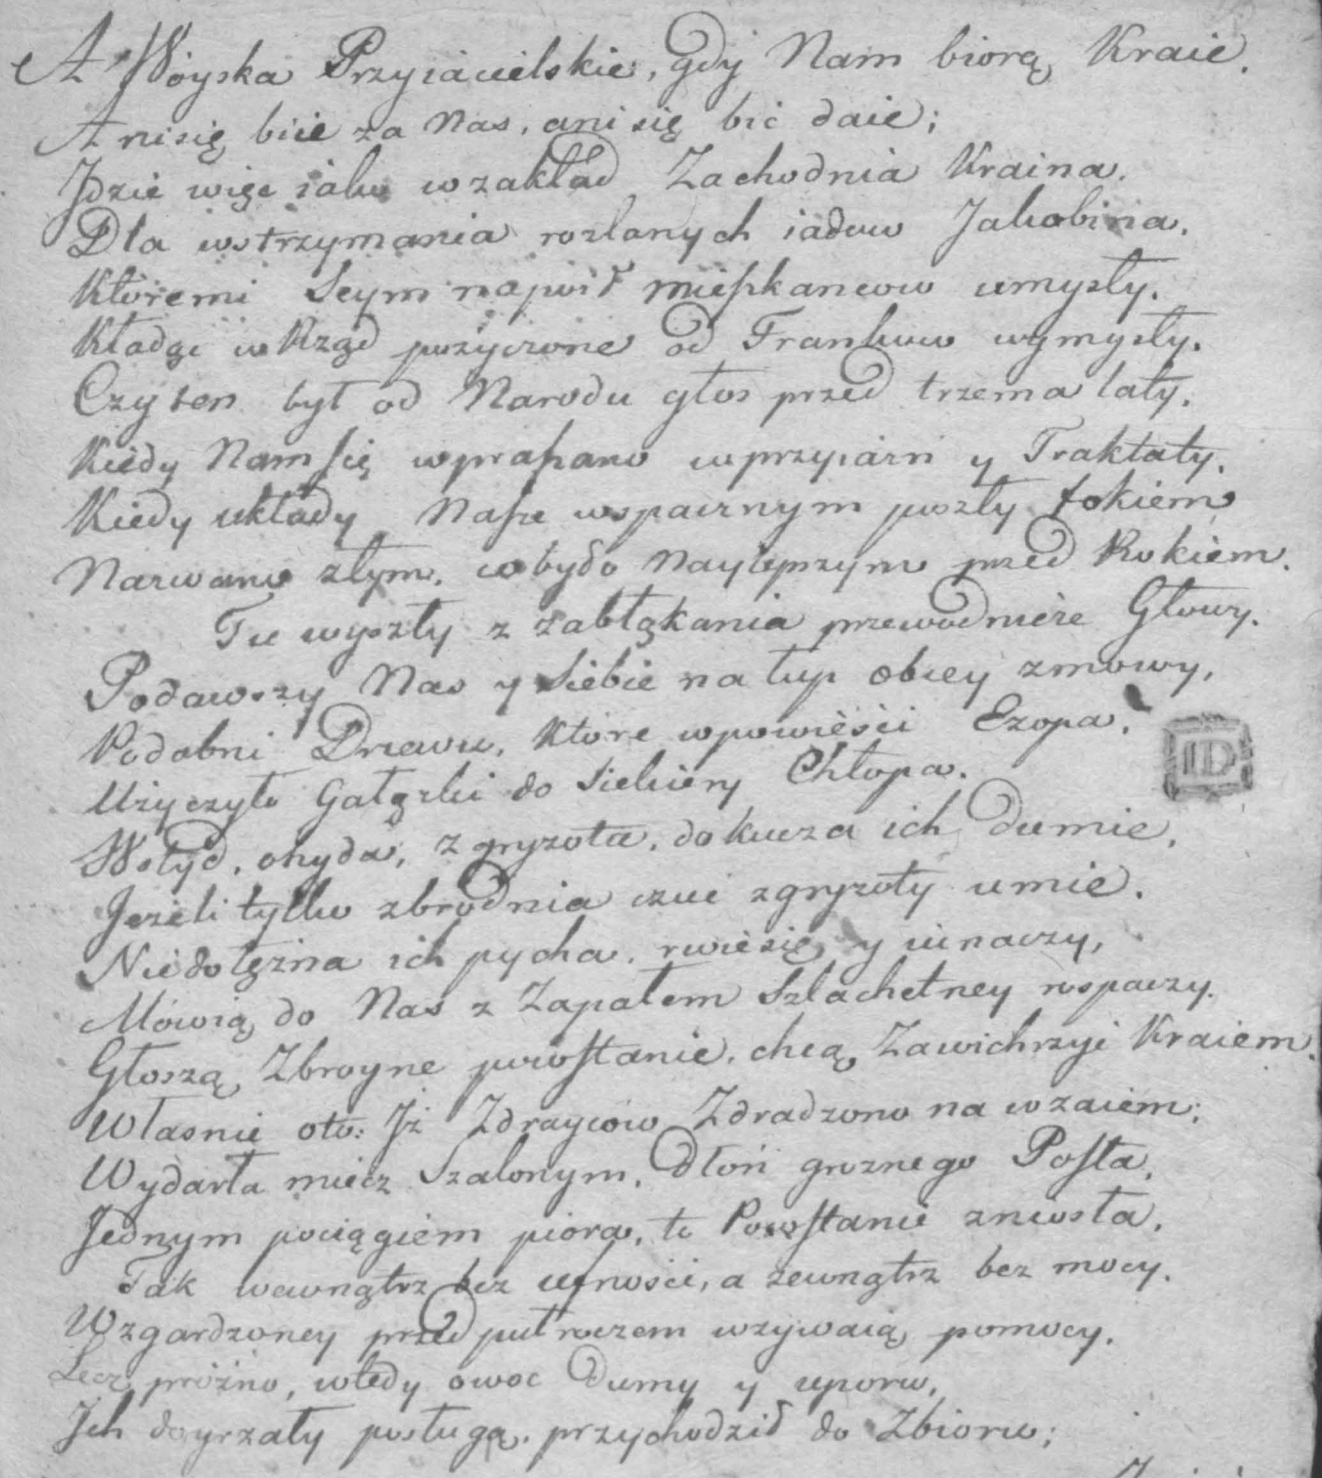 A Wóyska Przyiacielskie, gdy Nam biorą Kraie.
Ani się biie za Nas, ani się bić daie;
Jdzie więc iako w zakład Zachodnia Kraina.
Dla wstrzymania rozlanych iadow Jakobina.
Któremi Seym napoił mięszkancow umysły.
Kładąc w Rząd pożyczone od Frankow wymysły.
Czy ten był od Narodu głos przed trzema laty.
Kiedy Nam się wpraszano w przyiaźn y Traktaty.
Kiedy układy Nasze wspacznym poszły tokiem
Nazwano złym, co bydo Naylepszym przed Rokiem.
Tu wyszły z zabłąkania przewodnicze Głowy.
Podawszy Nas y Siebie na łup obcey zmowy,
Podobni Drzewu, które w powieści Ezopa.
Użyczyło Gałązki do Siekiery Chłopa.
Wstyd, ohyda, zgryzota, dokucza ich dumie,
Jeżeli tylko zbrodnia czuć zgryzoty umie.
Niedołężna ich pycha, rwie się y iunaczy,
Mówią do Nas z Zapałem Szlachetney rospaczy.
Głoszą Zbroyne powstanie, chcą Zawichrzyć Kraiem.
Własnie oto: Jż Zdraycow Zdradzono na wzaiem;
Wydarła miecz Szalonym, dłoń groznego Posła,
Jednym pociągiem piora, to Powstanie zniosła.
Tak wewnątrz bez ufności, a zewnątrz bez mocy.
Wzgardzoney przed puł roczem wzywaią pomocy.
Lecz próżno, wtedy owoc Dumy y uporu,
Jch doyrzały posługą, przychodził do Zbioru;
ID